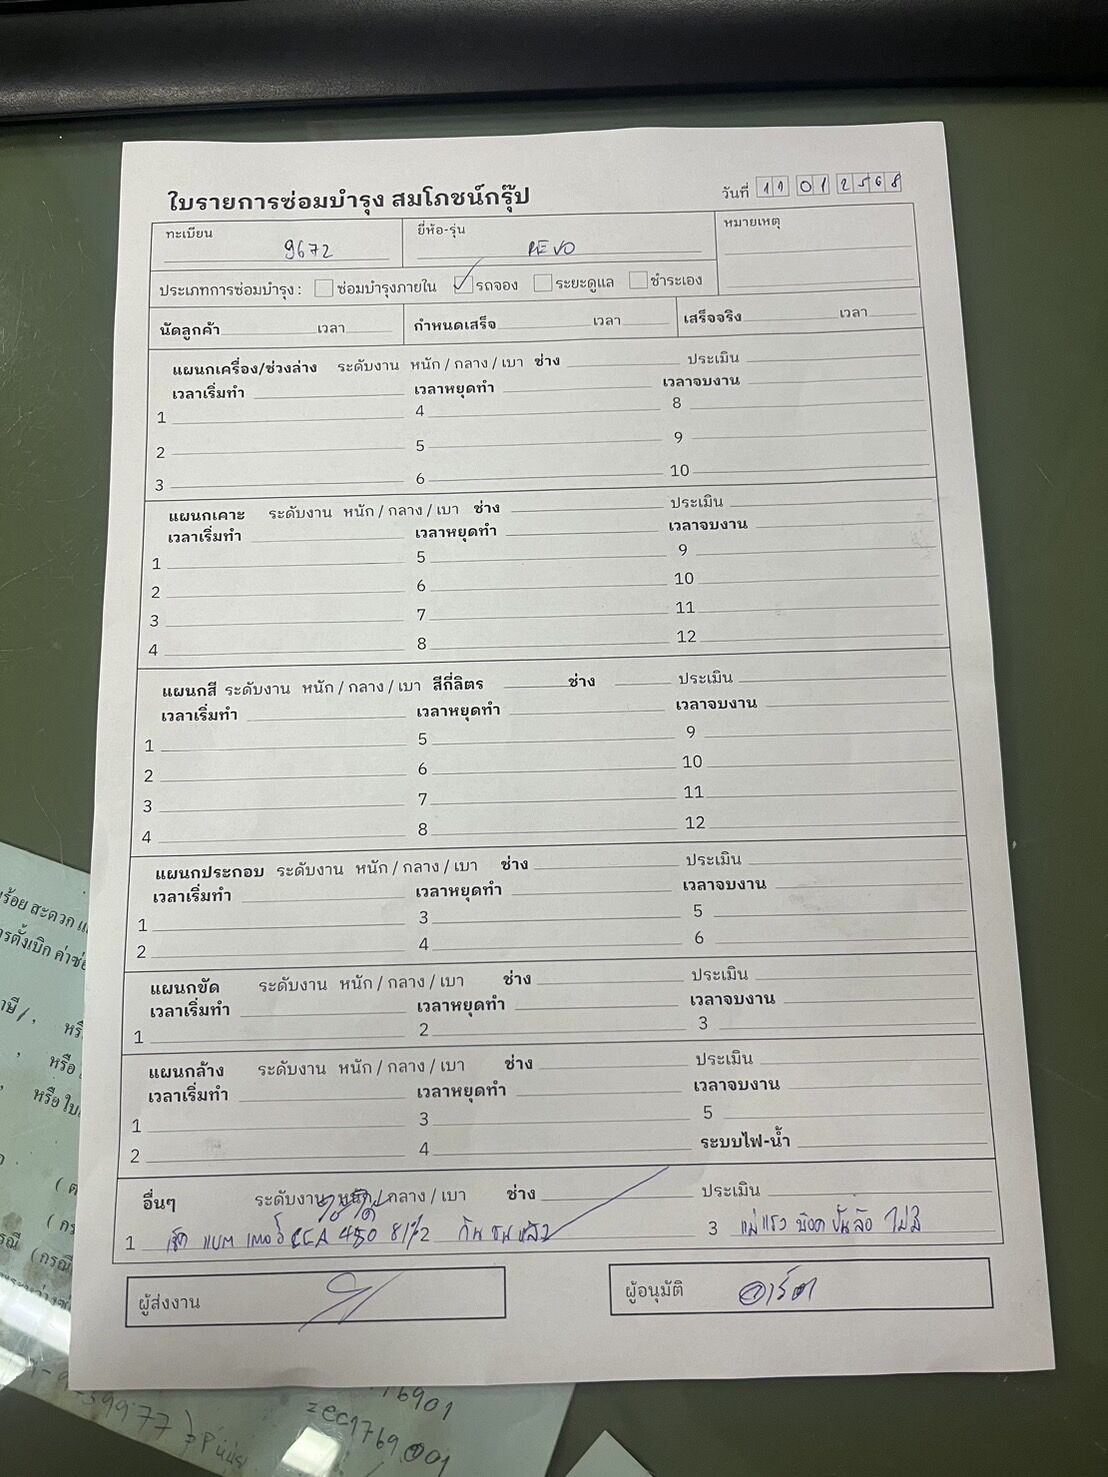 ใบรายการซ่อมบำรุง สมโภชน์กรุ๊ป
วันที่ 11 01 2568
ทะเบียน 9672 ยี่ห้อ-รุ่น REVO หมายเหตุ
ประเภทการซ่อมบำรุง : ซ่อมบำรุงภายใน รถจอง ระยะดูแล ชำระเอง
นัดลูกค้า เวลา กำหนดเสร็จ เวลา เสร็จจริง เวลา
แผนกเครื่อง/ช่วงล่าง ระดับงาน หนัก / กลาง / เบา ช่าง ประเมิน
เวลาเริ่มทำ เวลาหยุดทำ เวลาจบงาน
1 4 8
2 5 9
3 6 10
แผนกเคาะ ระดับงาน หนัก / กลาง / เบา ช่าง ประเมิน
เวลาเริ่มทำ เวลาหยุดทำ เวลาจบงาน
1 5 9
2 6 10
3 7 11
4 8 12
แผนกสี ระดับงาน หนัก / กลาง / เบา สีกี่ลิตร ช่าง ประเมิน
เวลาเริ่มทำ เวลาหยุดทำ เวลาจบงาน
1 5 9
2 6 10
3 7 11
4 8 12
แผนกประกอบ ระดับงาน หนัก / กลาง / เบา ช่าง ประเมิน
เวลาเริ่มทำ เวลาหยุดทำ เวลาจบงาน
1 3 5
2 4 6
แผนกขัด ระดับงาน หนัก / กลาง / เบา ช่าง ประเมิน
เวลาเริ่มทำ เวลาหยุดทำ เวลาจบงาน
1 2 3
แผนกล้าง ระดับงาน หนัก / กลาง / เบา ช่าง ประเมิน
เวลาเริ่มทำ เวลาหยุดทำ เวลาจบงาน
1 3 5
2 4 ระบบไฟ-น้ำ
อื่นๆ ระดับงาน หนัก / กลาง / เบา ช่าง ประเมิน
ใช้ได้
1 เช็ค แบต เทอร์ CCA 450 81% 3 แม่แรง บ๊อก ขันล้อ ไม่มี
ผู้ส่งงาน ผู้อนุมัติ อาร์ต
ร้อย สะดวก
ารตั้งเบิก
หรือ
หรือ ใบ
77
16901
zec1769001